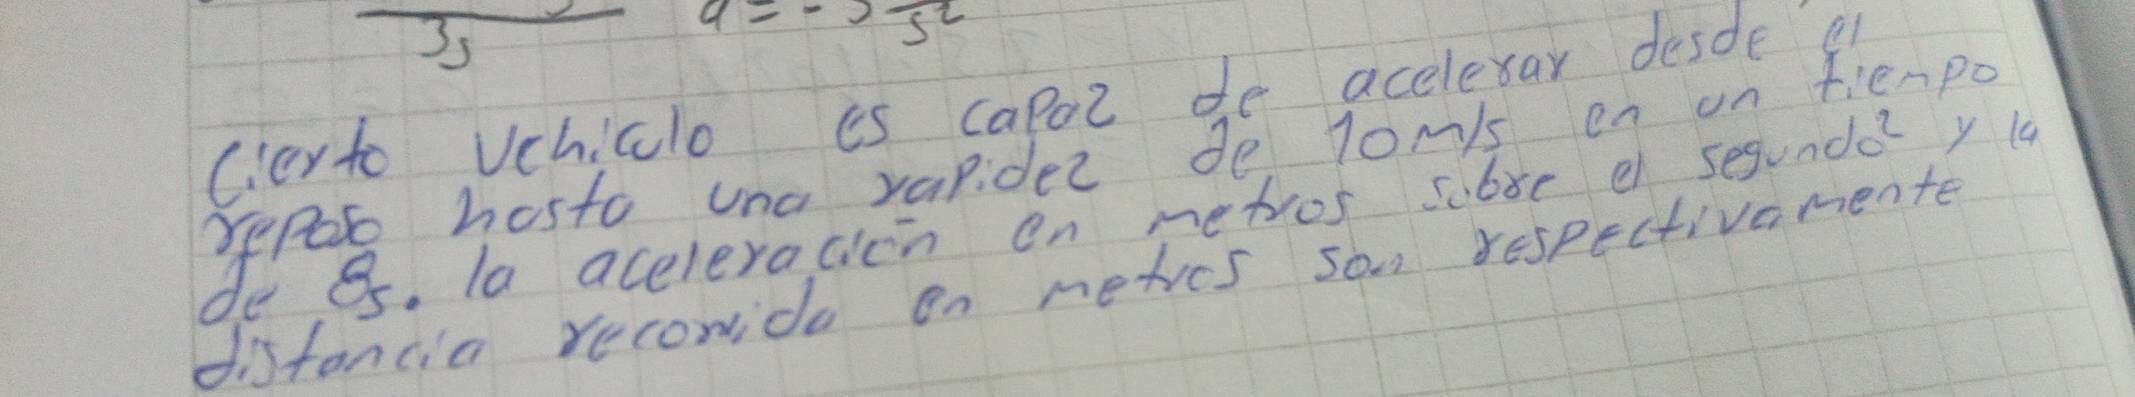 3s a = -3 /s²
Cierto vehiculo es capaz de acelerar desde el
reposo hasta una rapidez de 10 m/s en un tiempo
de 8s. la aceleración en metros sobre el segundo² y la
distancia recorrida en metros son respectivamente